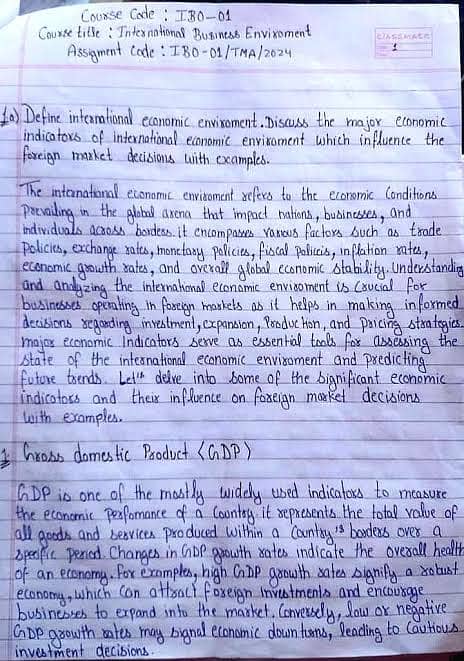 Course Code : IBO-01
Course title : International Business Enviroment
Assigment Code : IBO-01/TMA/2024
CLASSMATE
1
1a) Define international economic enviroment. Discuss the major economic
indicators of international economic enviroment which influence the
foreign market decisions with examples.
The international economic enviroment refers to the economic Conditions
prevailing in the global arena that impact nations, businesses, and
individuals across borders. it encompases various factors such as trade
Policies, exchange rates, monetary policies, fiscal policies, inflation rates,
economic growth rates, and overall global economic stability. Understanding
and analyzing the international economic enviroment is Crucial for
businesses operating in foreign markets as it helps in making informed
decisions regarding investment, expansion, Production, and pricing strategies.
major economic Indicators serve as essential tools for assessing the
state of the international economic enviroment and predicting
future trends. Let's delve into some of the significant economic
indicators and their influence on foreign market decisions
with examples.
1 Gross domestic Product (GDP)
GDP is one of the mostly widely used indicators to measure
the economic Perfomance of a Country it represents the total value of
all goods and services produced within a Country's borders over a
specific period. Changes in GDP growth rates indicate the overall health
of an economy. For examples, high GDP growth rates signify a robust
economy, which can attract foreign investments and encourage
businesses to expand into the market. Conversely, low or negative
GDP growth rates may signal economic downturns, leading to Cautious
investment decisions.